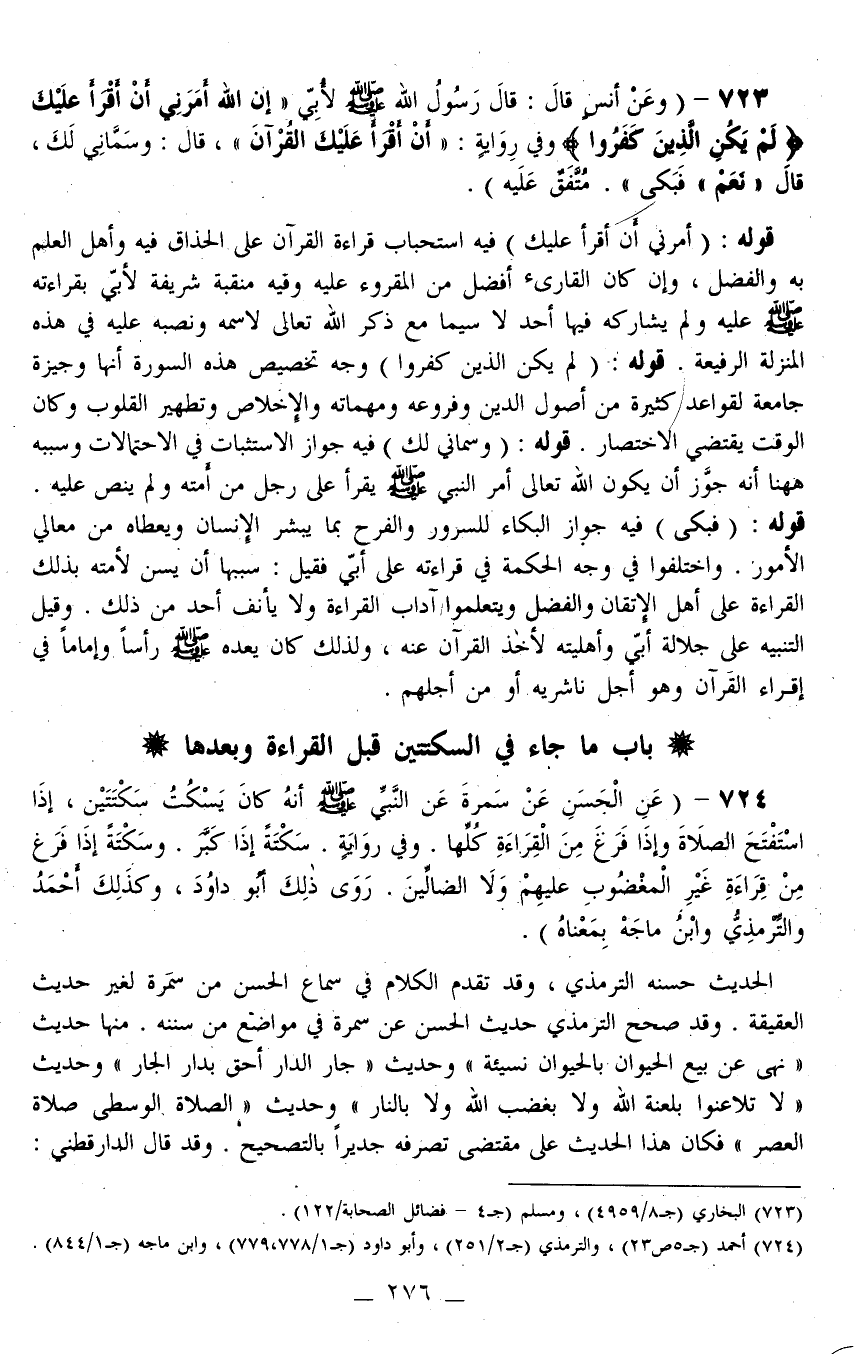 ٧٢٣ – ( وعَنْ أنسٍ قالَ : قالَ رَسُولُ الله ﷺ لأُبَيّ « إن الله أَمَرَنِي أَنْ أَقْرَأَ عَلَيْكَ
﴿ لَمْ يَكُنِ الَّذِينَ كَفَرُوا ﴾ وفي رِوَايَةٍ : « أَنْ أَقْرَأَ عَلَيْكَ القُرْآنَ » ، قال : وسَمَّانِي لَكَ ،
قالَ « نَعَمْ » فَبَكى » . مُتَّفَقٌ عَلَيه ) .
قوله : ( أمرني أن أقرأ عليك ) فيه استحباب قراءة القرآن على الحذاق فيه وأهل العلم
به والفضل ، وإن كان القارىء أفضل من المقروء عليه وفيه منقبة شريفة لأبيّ بقراءته
ﷺ عليه ولم يشاركه فيها أحد لا سيما مع ذكر الله تعالى لاسمه ونصبه عليه في هذه
المنزلة الرفيعة . قوله : ( لم يكن الذين كفروا ) وجه تخصيص هذه السورة أنها وجيزة
جامعة لقواعد كثيرة من أصول الدين وفروعه ومهماته والإخلاص وتطهير القلوب وكان
الوقت يقتضي الاختصار . قوله : ( وسماني لك ) فيه جواز الاستثبات في الاحتمالات وسببه
ههنا أنه جوَّز أن يكون الله تعالى أمر النبي ﷺ يقرأ على رجل من أمته ولم ينص عليه .
قوله : ( فبكى ) فيه جواز البكاء للسرور والفرح بما يبشر الإنسان ويعطاه من معالي
الأمور . واختلفوا في وجه الحكمة في قراءته على أبيّ فقيل : سببها أن يسن لأمته بذلك
القراءة على أهل الإتقان والفضل ويتعلموا آداب القراءة ولا يأنف أحد من ذلك . وقيل
التنبيه على جلالة أبيّ وأهليته لأخذ القرآن عنه ، ولذلك كان يعده ﷺ رأساً وإماماً في
إقراء القرآن وهو أجل ناشريه أو من أجلهم .
✵ باب ما جاء في السكتتين قبل القراءة وبعدها ✵
٧٢٤ – ( عَنِ الْحَسَنِ عَنْ سَمرةَ عَن النَّبِيِّ ﷺ أنهُ كانَ يَسْكُتُ سَكْتَتَيْن ، إذَا
اسْتَفْتَحَ الصلَاةَ وإذَا فَرَغَ مِنَ القِرَاءَةِ كُلِّها . وفي روايَةٍ . سَكْتَةً إذَا كَبَّرَ . وسكتَةً إذَا فَرَغ
مِنْ قِرَاءَةِ غَيْرِ الْمغْضُوبِ عليهِمْ وَلَا الضالِّينَ . رَوَى ذٰلِكَ أَبُو داوُدَ ، وكذَلِكَ أَحْمَدُ
والتِّرْمذِيُّ وابْنُ ماجَهْ بِمَعْناهُ ) .
الحديث حسنه الترمذي ، وقد تقدم الكلام في سماع الحسن من سمَرة لغير حديث
العقيقة . وقد صحح الترمذي حديث الحسن عن سمرة في مواضع من سننه . منها حديث
« نهى عن بيع الحيوان بالحيوان نسيئة » وحديث « جار الدار أحق بدار الجار » وحديث
« لا تلاعنوا بلعنة الله ولا بغضب الله ولا بالنار » وحديث « الصلاة الوسطى صلاة
العصر » فكان هذا الحديث على مقتضى تصرفه جديراً بالتصحيح . وقد قال الدارقطني :
(٧٢٣) البخاري (جـ٤٩٥٩/٨) ، ومسلم (جـ٤ – فضائل الصحابة/١٢٢) .
(٧٢٤) أحمد (جـ٥ص٢٣) ، والترمذي (جـ٢٥١/٢) ، وأبو داود (جـ٧٧٩،٧٧٨/١) ، وابن ماجه (جـ٨٤٤/١) .
— ٢٧٦ —